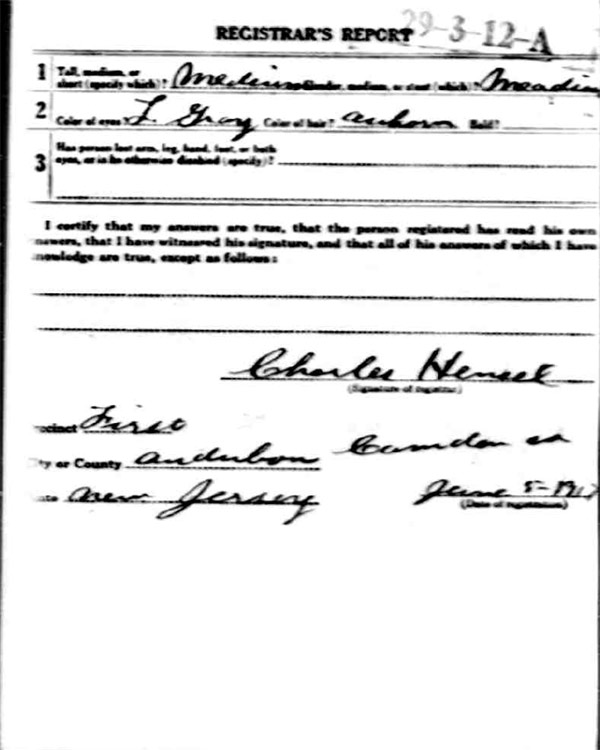 REGISTRAR'S REPORT 29-3-12-A
1 Tall, medium, or short (specify which)? Medium Slender, medium, or stout (which)? Meadium
2 Color of eyes? L. Gray Color of hair? auborn Bald?
3 Has person lost arm, leg, hand, foot, or both eyes, or is he otherwise disabled (specify)?
I certify that my answers are true, that the person registered has read his own
nswers, that I have witnessed his signature, and that all of his answers of which I have
nowledge are true, except as follows:
Charles Hensel
(Signature of registrar)
ecinct First
ty or County Audubon Camden co
New Jersey June 5-1917
(Date of registration)